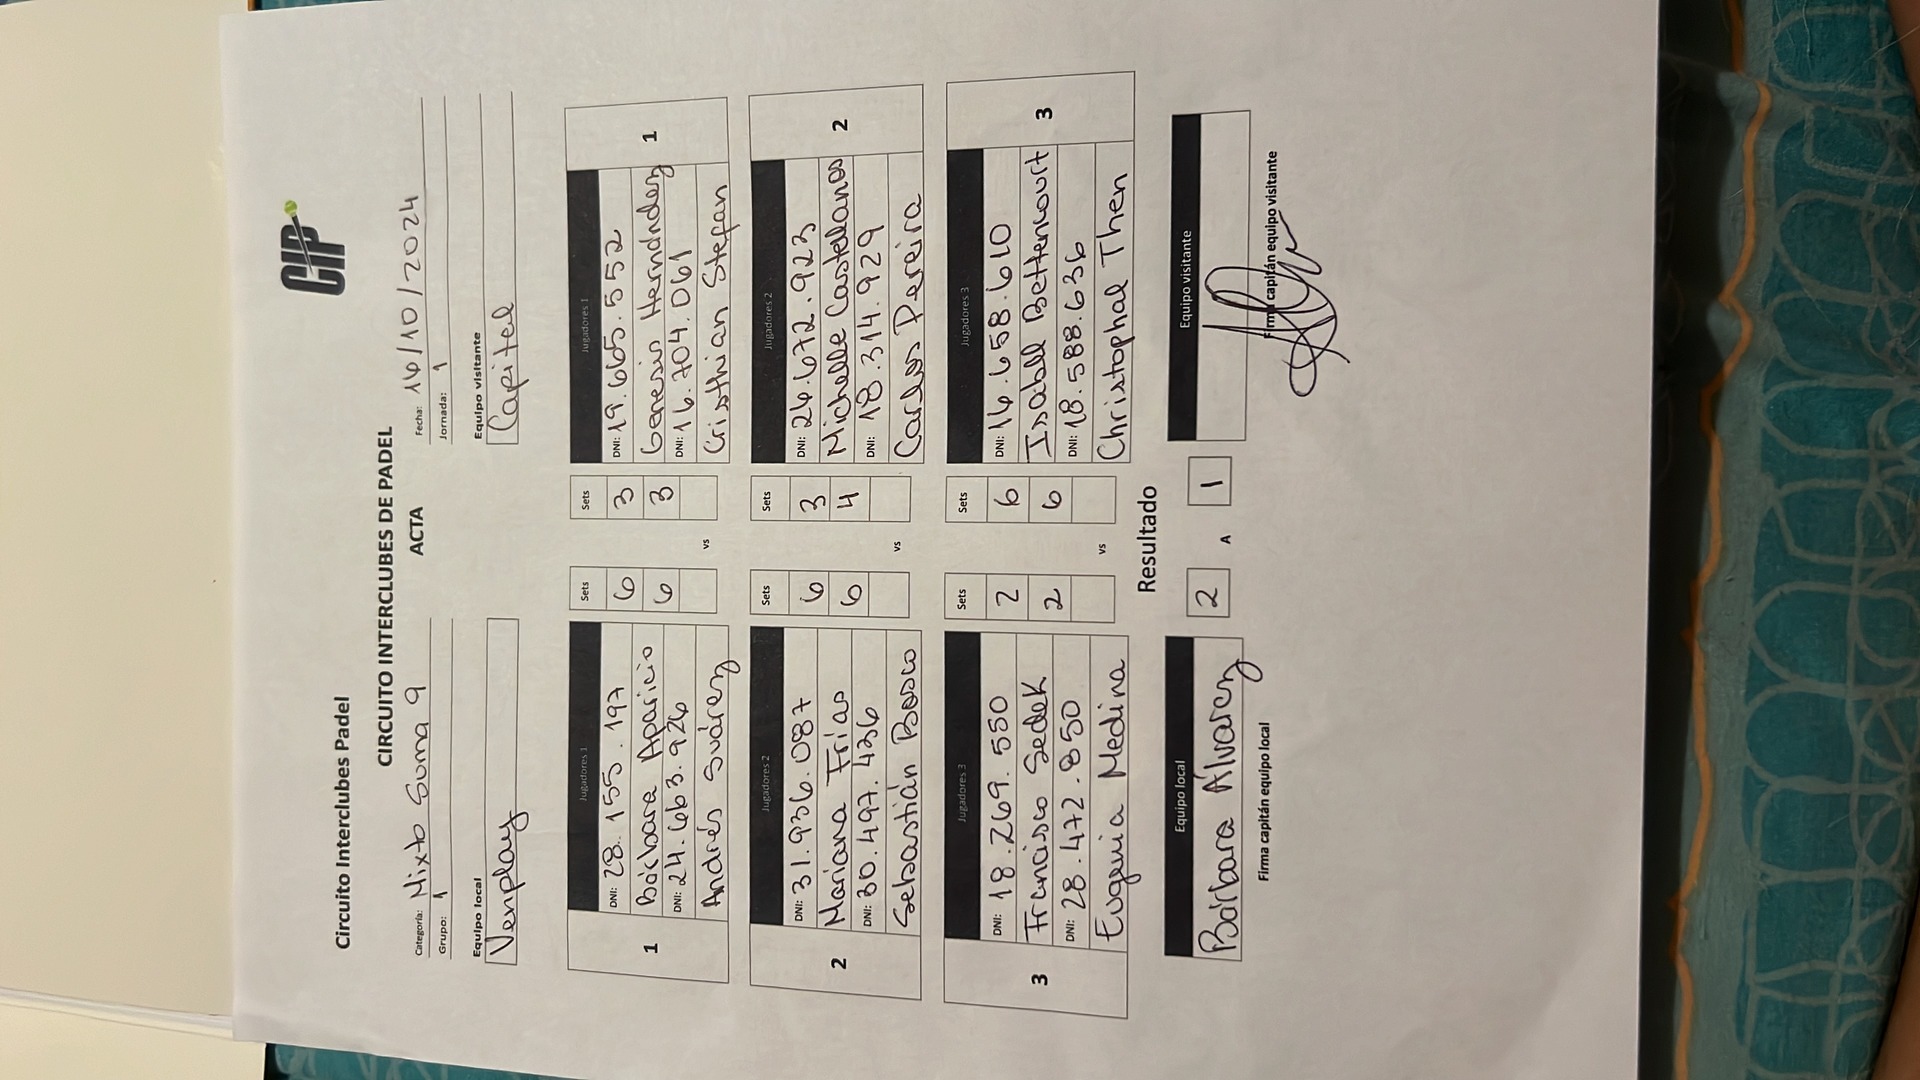 CIP
Circuito Interclubes Padel
CIRCUITO INTERCLUBES DE PADEL
ACTA
Categoría: Mixto Suma 9
Fecha: 16/10/2024
Grupo: 1
Jornada: 1
Equipo local
Equipo visitante
Venplay
Capital
Jugadores 1 Sets Sets Jugadores 1
DNI: 28.155.197 6 3 DNI: 19.665.552
1 Bárbara Aparicio 6 3 Genesis Hernández 1
DNI: 24.663.926 DNI: 16.704.061
Andrés Suárez vs Cristhian Stefan
Jugadores 2 Sets Sets Jugadores 2
DNI: 31.936.087 6 3 DNI: 26.672.923
2 Mariana Frías 6 4 Michelle Castellanos 2
DNI: 30.497.436 DNI: 18.314.929
Sebastián Bosco vs Carlos Pereira
Jugadores 3 Sets Sets Jugadores 3
DNI: 18.269.550 2 6 DNI: 16.658.610
3 Francisco Sedek 2 6 Isabelle Bettencourt 3
DNI: 28.472.850 DNI: 18.588.636
Eugenia Medina vs Christophal Then
Resultado
Equipo local 2 A 1 Equipo visitante
Bárbara Álvarez
Firma capitán equipo local
Firma capitán equipo visitante